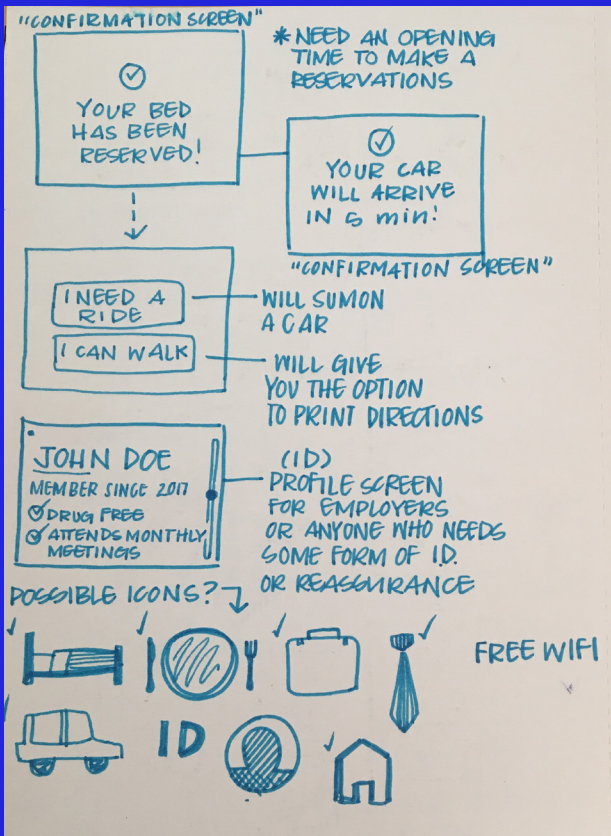 "CONFIRMATION SCREEN"
YOUR BED
HAS BEEN
RESERVED!
*NEED AN OPENING
TIME TO MAKE A
RESERVATIONS
YOUR CAR
WILL ARRIVE
IN 5 min!
"CONFIRMATION SCREEN"
I NEED A
RIDE
WILL SUMON
A CAR
I CAN WALK
WILL GIVE
YOU THE OPTION
TO PRINT DIRECTIONS
JOHN DOE
MEMBER SINCE 2017
DRUG FREE
ATTENDS MONTHLY
MEETINGS
(ID)
PROFILE SCREEN
FOR EMPLOYERS
OR ANYONE WHO NEEDS
SOME FORM OF I.D.
OR REASSURANCE
POSSIBLE ICONS?
FREE WIFI
ID